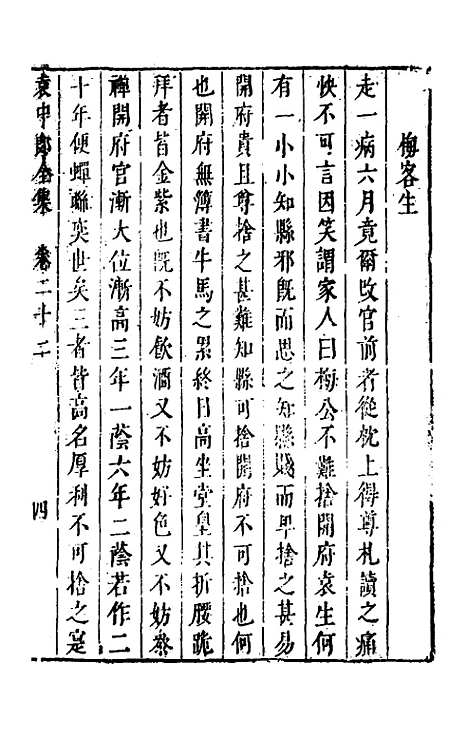 梅客生
走一病六月竟爾改官前者從枕上得尊札讀之痛
快不可言因笑謂家人曰梅公不難捨開府袁生何
有一小小知縣邪旣而思之知縣賤而卑捨之甚易
開府貴且尊捨之甚難知縣可捨開府不可捨也何
也開府無簿書牛馬之累終日高坐堂皇其折腰跪
拜者皆金紫也旣不妨飲酒又不妨好色又不妨叅
禪開府官漸大位漸高三年一蔭六年二蔭若作二
十年便蟬聯奕世矣三者皆高名厚利不可捨之寔
袁中郎全集 卷二十二 四